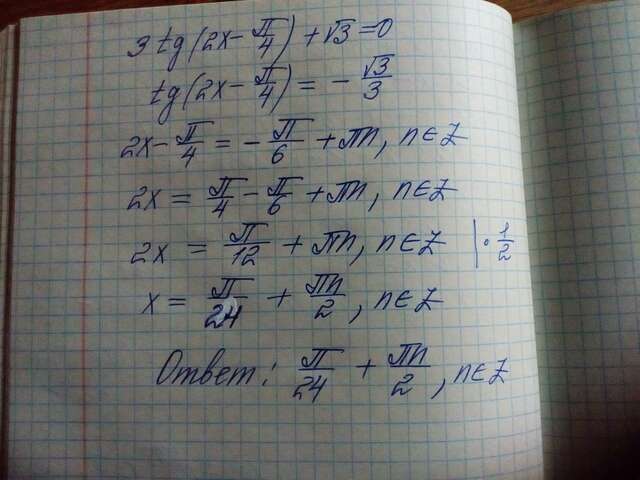 3 tg(2x - π/4) + √3 = 0
tg(2x - π/4) = - √3/3
2x - π/4 = - π/6 + πn, n ∈ Z
2x = π/4 - π/6 + πn, n ∈ Z
2x = π/12 + πn, n ∈ Z | · 1/2
x = π/24 + πn/2, n ∈ Z
Ответ: π/24 + πn/2, n ∈ Z